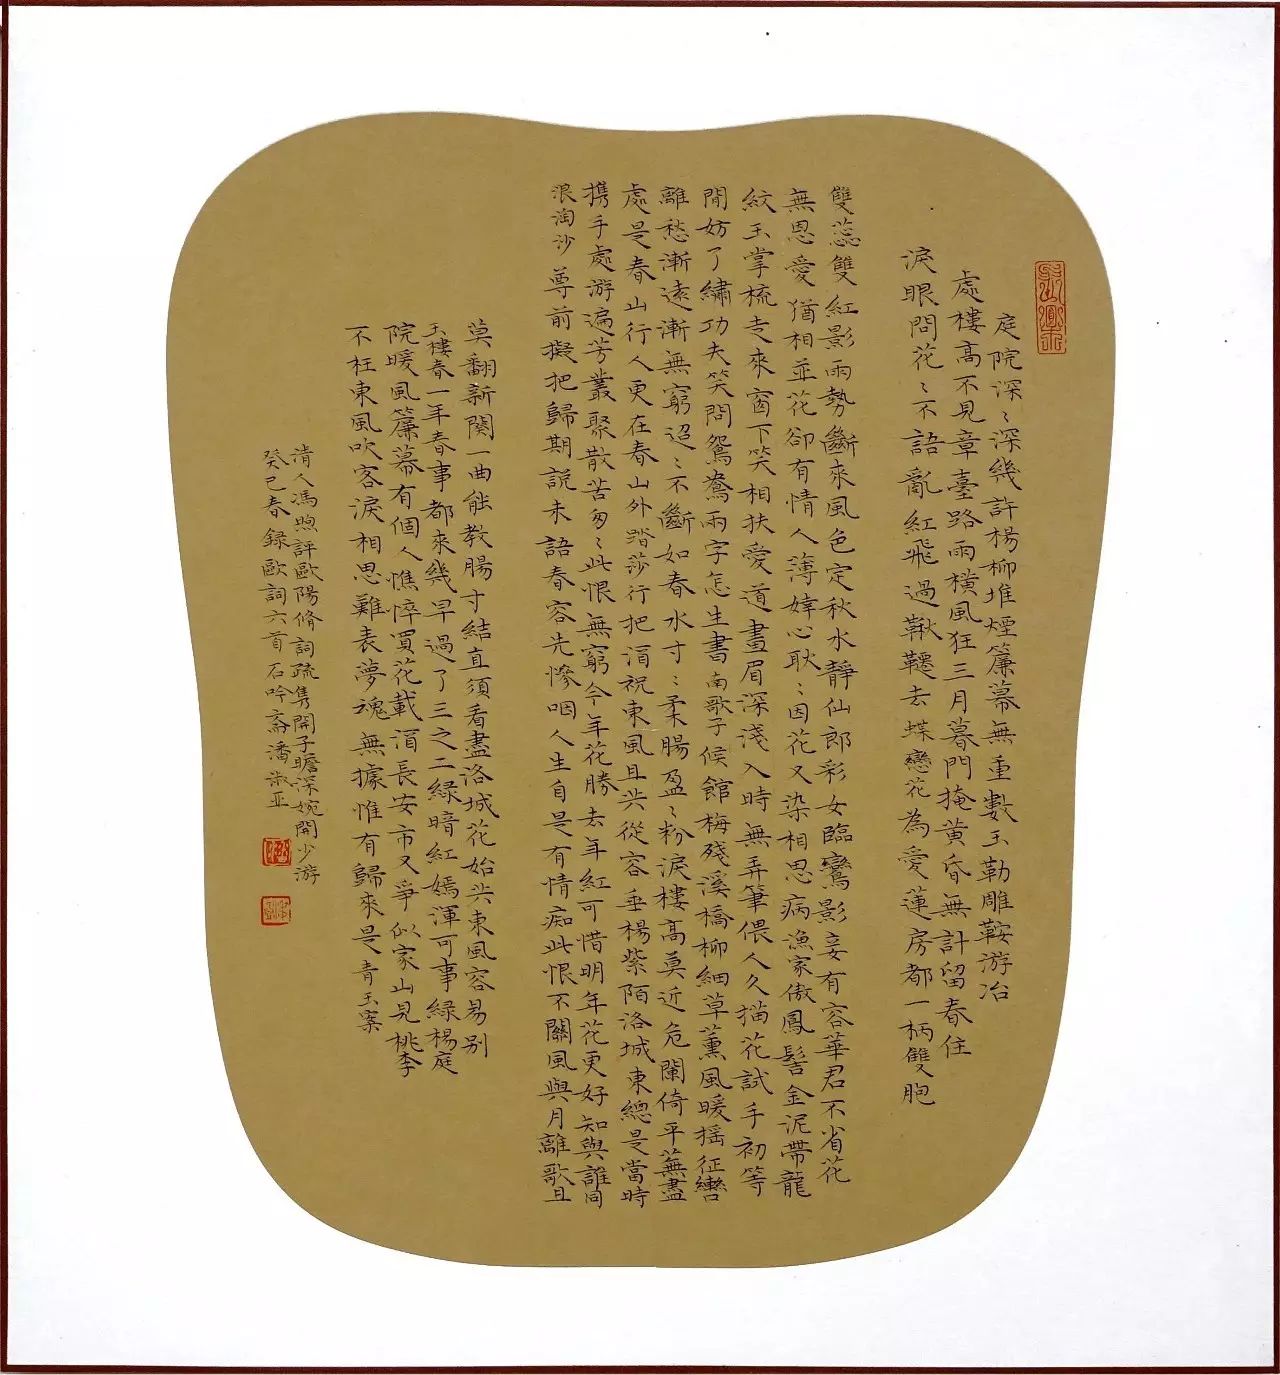 庭院深〻深幾許楊柳堆煙簾幕無重數玉勒雕鞍游冶
處樓高不見章臺路雨橫風狂三月暮門掩黄昏無計留春住
淚眼問花〻不語亂紅飛過鞦韆去蝶戀花為愛蓮房都一柄雙胞
雙蕊雙紅影雨勢斷來風色定秋水靜仙郎彩女臨鸞影妾有容華君不省花
無恩愛猶相並花卻有情人薄婞心耿〻因花又染相思病漁家傲鳳髻金泥帶龍
紋玉掌梳走來窗下笑相扶愛道畫眉深淺入時無弄筆偎人久描花試手初等
閒妨了繡功夫笑問鴛鴦兩字怎生書南歌子候館梅殘溪橋柳細草薰風暖摇征轡
離愁漸遠漸無窮迢〻不斷如春水寸〻柔腸盈〻粉淚樓高莫近危闌倚平蕪盡
處是春山行人更在春山外踏莎行把酒祝東風且共從容垂楊紫陌洛城東總是當時
携手處游遍芳叢聚散苦匆〻此恨無窮今年花勝去年紅可惜明年花更好知與誰同
浪淘沙尊前擬把歸期說未語春容先慘咽人生自是有情痴此恨不關風與月離歌且
莫翻新闋一曲能教腸寸結直須看盡洛城花始共東風容易别
玉樓春一年春事都來幾早過了三之二綠暗紅嫣渾可事綠楊庭
院暖風簾幕有個人憔悴買花載酒長安市又爭似家山見桃李
不枉東風吹客淚相思難表夢魂無據惟有歸來是青玉案
清人馮煦評歐陽脩詞疏雋開子瞻深婉開少游
癸巳春錄歐詞六首石吟齋潘淑亚